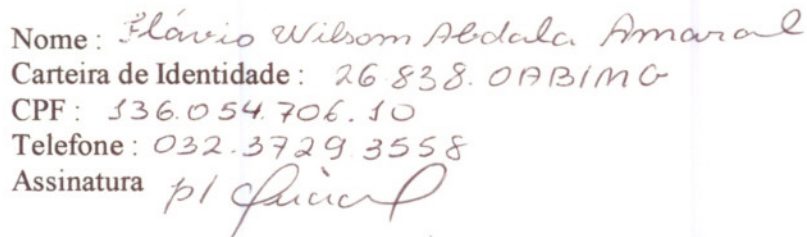 Nome : Flávio Wilsom Abdala Amaral
Carteira de Identidade : 26.838.OAB/MG
CPF : 136.054.706.10
Telefone : 032.3729.3558
Assinatura p/